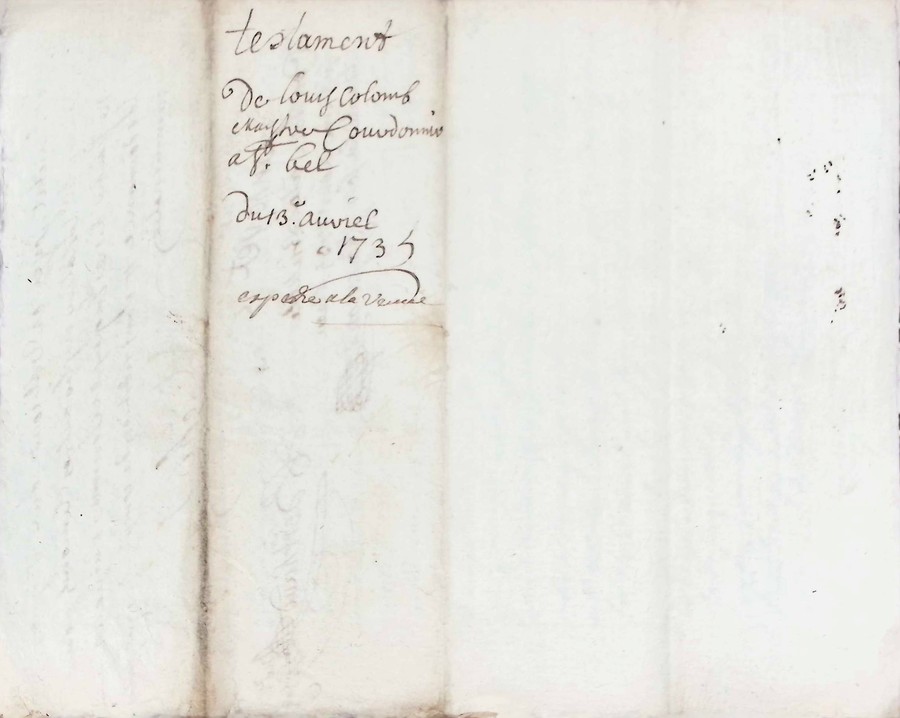 testament
De louis Colomb
Maistre Courdonnie
a St. bel
du 13e. auriel
1735
expedie a la veuue